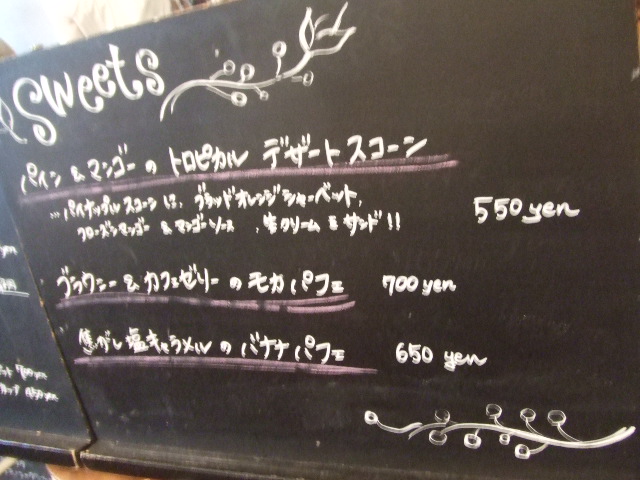 Sweets
パイン&マンゴーのトロピカルデザートスコーン
...パイナップルスコーンに、ブラッドオレンジシャーベット、
フローズンマンゴー&マンゴーソース、生クリームをサンド!! 550yen
ブラウニー&カフェゼリーのモカパフェ 700yen
焦がし塩キャラメルのバナナパフェ 650yen